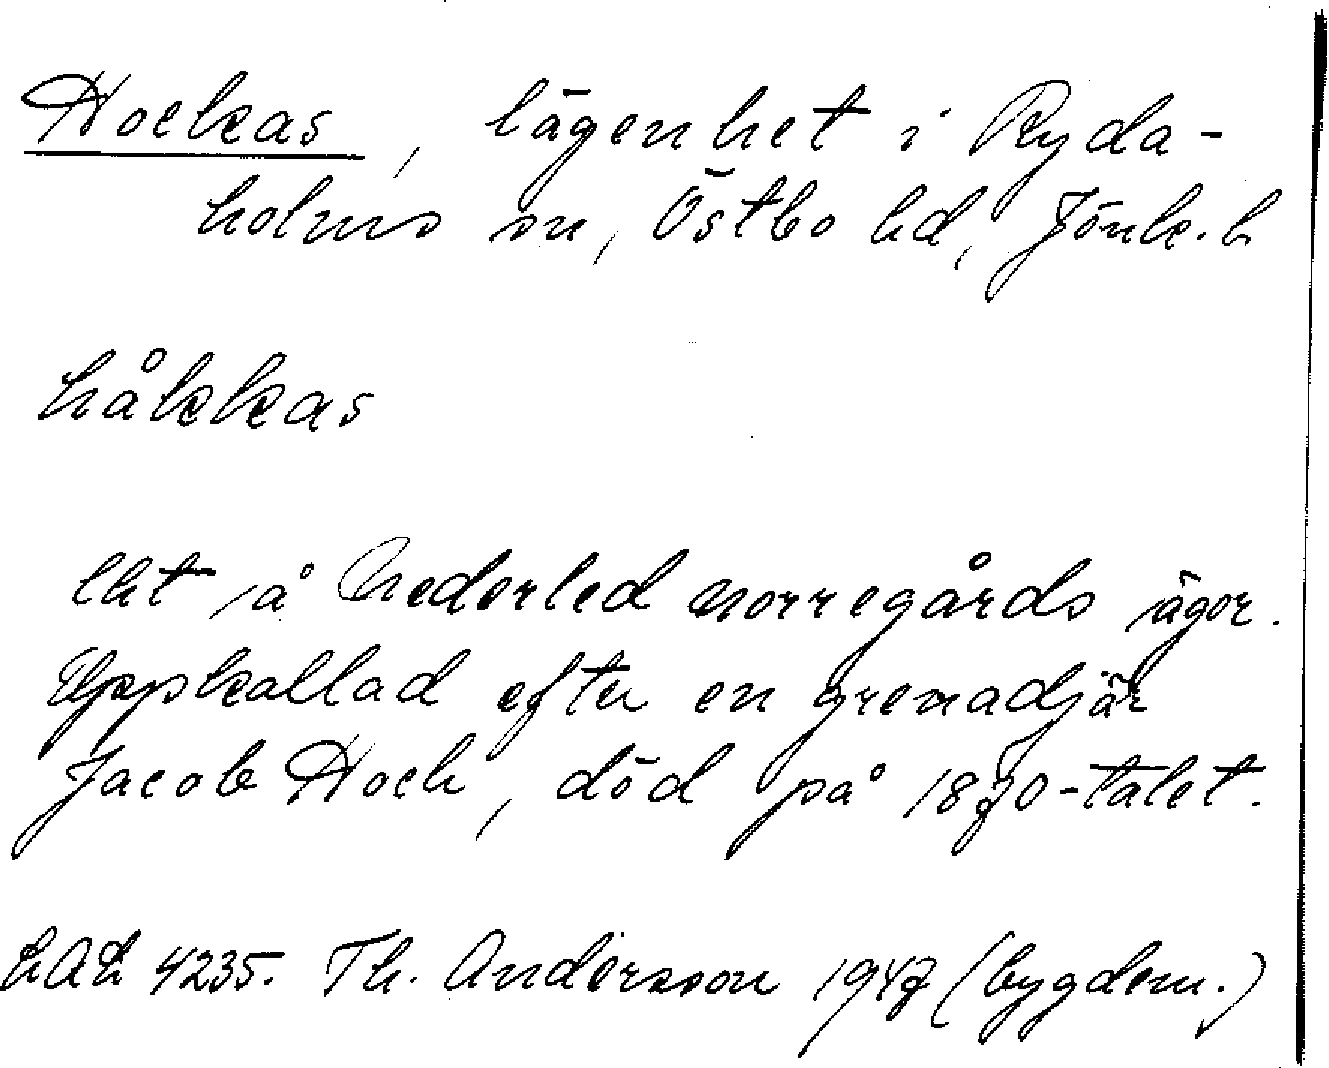 Hockas, lägenhet i Ryda-
holms sn, Östbo hd, Jönk. l.
håkkas
lht å Nederled Norregårds ägor.
Uppkallad efter en grenadjär
Jacob Hock, död på 1870-talet.
4235. Th. Andersson 1947 (bygdem.)